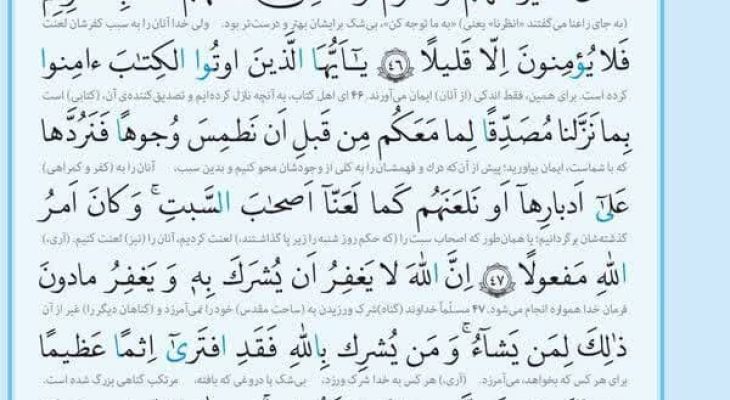 (به جای راعنا می‌گفتند «انظرنا» یعنی) «به ما توجه کن»، بی‌شک برایشان بهتر و درست‌تر بود. ولی خدا آنان را به سبب کفرشان لعنت
فَلا يُؤمِنونَ اِلّا قَليلًا ﴿٤٦﴾ يٰٓاَيُّهَا الَّذينَ اوتُوا الكِتٰبَ ءامِنوا
کرده است. برای همین، فقط اندکی (از آنان) ایمان می‌آورند. ۴۶ ای اهل کتاب، به آنچه نازل کرده‌ایم و تصدیق‌کننده‌ی آن، (کتابی) است
بِما نَزَّلنا مُصَدِّقًا لِما مَعَكُم مِن قَبلِ اَن نَطمِسَ وُجوهًا فَنَرُدَّها
که با شماست، ایمان بیاورید؛ پیش از آن‌که درك و فهمشان را به کلی از وجودشان محو کنیم و بدین سبب، آنان را به (کفر و گمراهی)
عَلىٰٓ اَدبارِهآ اَو نَلعَنَهُم كَما لَعَنّآ اَصحٰبَ السَّبتِ ۚ وَ كانَ اَمرُ
گذشته‌شان برگردانیم؛ یا همان‌طور که اصحاب سبت را (که حکم روز شنبه را زیر پا گذاشتند،) لعنت کردیم، آنان را (نیز) لعنت کنیم. (آری،)
اللهِ مَفعولًا ﴿٤٧﴾ اِنَّ اللهَ لا يَغفِرُ اَن يُشرَكَ بِهٖ وَ يَغفِرُ مادونَ
فرمان خدا همواره انجام می‌شود. ۴۷ مسلّماً خداوند (گناه) شرک ورزیدن به (ساحت مقدس) خود را نمی‌آمرزد و (گناهان دیگر را) غیر از آن
ذٰلِكَ لِمَن يَشآءُ ۚ وَ مَن يُشرِك بِاللهِ فَقَدِ افتَرىٰٓ اِثمًا عَظيمًا
برای هر کس که بخواهد، می‌آمرزد. (آری،) هر کس به خدا شرک ورزد، بی‌شک با دروغی که بافته، مرتکب گناهی بزرگ شده است.